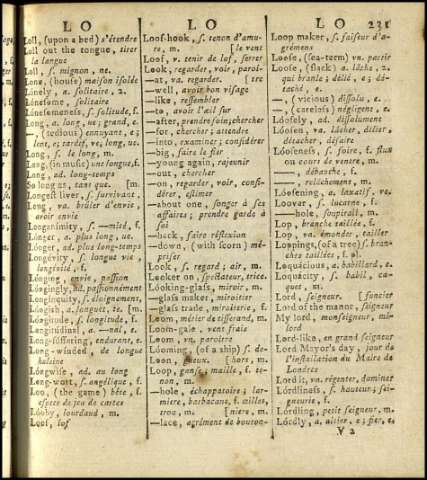 L O
L O
L O 231
Loll, (upon a bed) s'étendre
Loll out the tongue, tirer
la langue
Loll, s. mignon, ne.
Lone, (house) maison isolée
Lónely, a. solitaire, 2.
Lónesome, solitaire
Lónesomeness, s. solitude, f.
Long, a. long, ue; grand, e.
—, (tedious) ennuyant, e;
lent, e; tardif, ve, long, ue.
Long, s. le long, m.
Long, (in music) une longue, f.
Long, ad. long-temps
So long as, tant que. [m.
Longest liver, s. survivant,
Long, va. brûler d'envie,
avoir envie
Longanimity, s. —mité, f.
Lónger, a. plus long, ue.
Lónger, ad. plus long-temps
Longévity, s. longue vie,
longévité, f.
Lónging, envie, passion
Lóngingly, ad. passionnément
Longínquity, s. éloignement,
Lóngish, a. longuet, te. [m.
Lóngitude, s. longitude, f.
Longitúdinal, a. —nal, e.
Long-súffering, endurant, e.
Long-wínded, de longue
haleine
Lóngwise, ad. au long
Long-wort, s. angélique, f.
Loo, (the game) bête, f.
espece de jeu de cartes
Lóoby, lourdaud, m.
Loof, lof
Loof-hook, s. tenon d'amu-
re, m. [le vent
Loof, v. tenir de lof, serrer
Look, regarder, voir, paroî-
—at, va. regarder. [tre
—well, avoir bon visage
—like, ressembler
—to, avoir l'œil sur
—after, prendre soin; chercher
—for, chercher; attendre
—into, examiner; considérer
—big, faire le fier
—young again, rajeunir
—out, chercher
—on, regarder, voir, consi-
dérer, estimer
—about one, songer à ses
affaires; prendre garde à
soi
—back, faire réflexion
—down, (with scorn) mé-
priser
Look, s. regard; air, m.
Looker on, spectateur, trice.
Lóoking-glass, miroir, m.
—glass maker, miroitier
—glass trade, miroiterie, f.
Loom, métier de tisserand, m.
Loom-gale, vent frais
Loom, vn. paroître
Lóoming, (of a ship) s. de-
Loon, gueux. [hors, m.
Loop, ganse, maille, f. te-
non, m.
—hole, échappatoire; lar-
miere, barbacane, f. œillet,
trou, m. [niere, m.
—lace, agrément de bouton-
Loop maker, s. faiseur d'a-
grémens
Loose, (sea-term) vn. partir
Loose, (slack) a. lâche, 2.
qui branle; délié, e; dé-
taché, e.
—, (vicious) dissolu, e.
—, (careless) négligent, e.
Lóosely, ad. dissolument
Lóosen, va. lâcher, délier,
détacher, défaire
Lóoseness, s. foire, f. flux
ou cours de ventre, m.
—, débauche, f.
—, relâchement, m.
Lóosening, a. laxatif, ve.
Loover, s. lucarne, f.
—hole, soupirail, m.
Lop, branche taillée, f.
Lop, va. émonder, tailler
Loppings, (of a tree) s. bran-
ches taillées, f. pl.
Loquácious, a. babillard, e.
Loquácity, s. babil, ca-
quet, m.
Lord, seigneur. [foncier
Lord of the manor, seigneur
My lord, monseigneur, mi-
lord
Lord-like, en grand seigneur
Lord Mayor's day, jour de
l'installation du Maire de
Londres
Lord it, va. régenter, dominer
Lórdliness, s. hauteur; sei-
gneurie, f.
Lórdling, petit seigneur, m.
Lórdly, a. altier, e; fier, e.
V 2